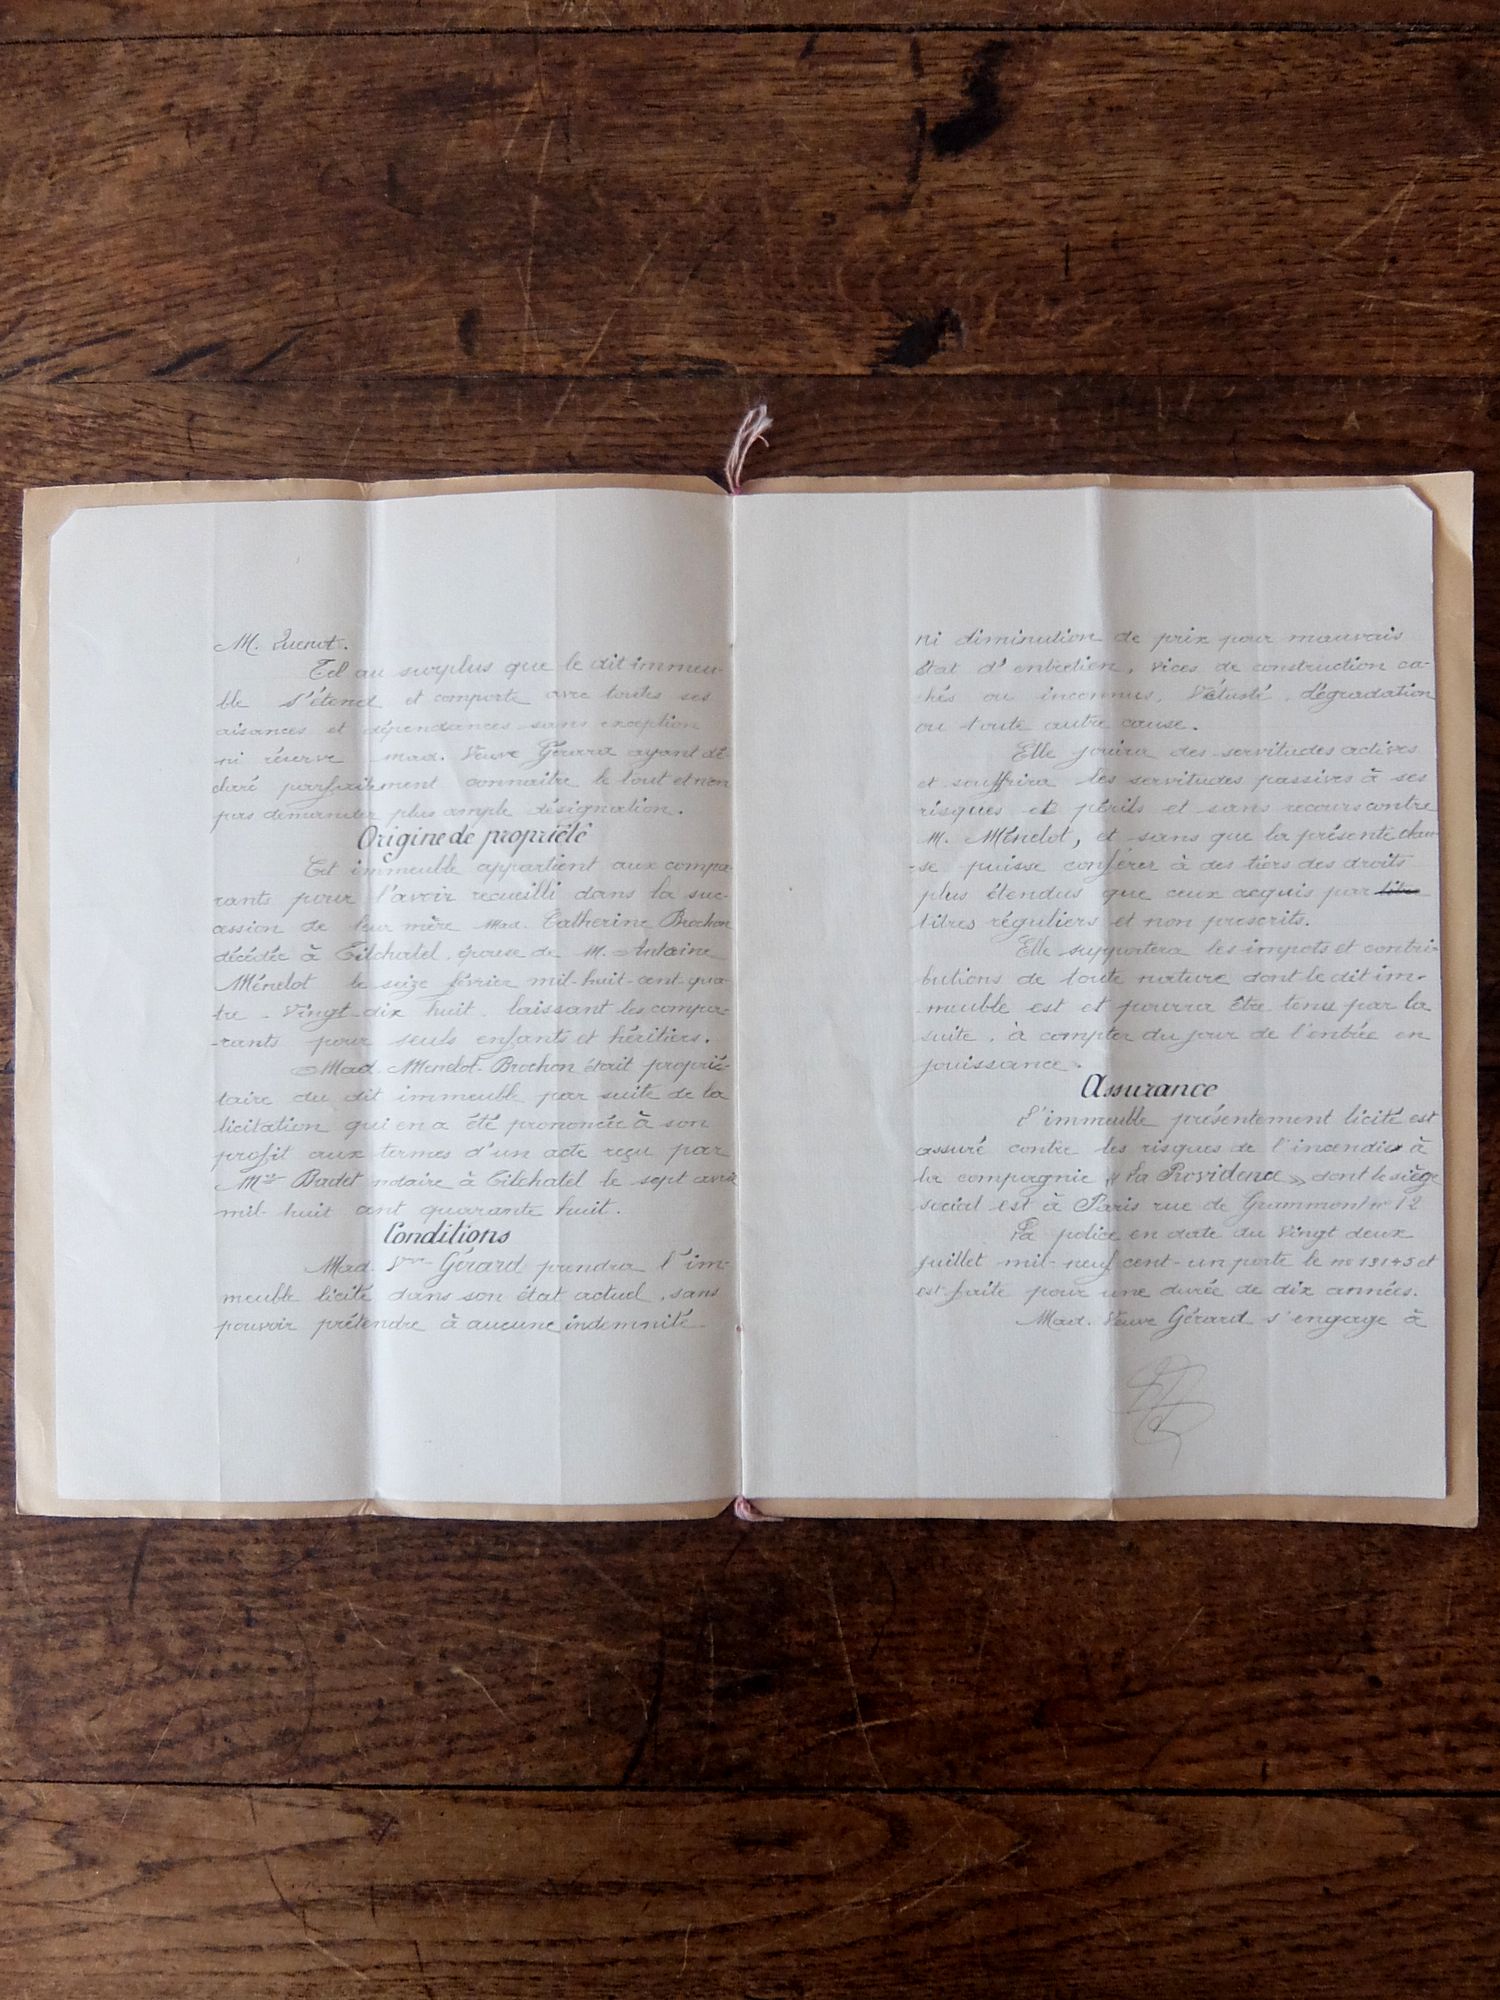 M. Quenot.
Tel au surplus que le dit immeu-
ble s'étend et comporte avec toutes ses
aisances et dépendances sans exception
ni réserve mad. Veuve Gérard ayant dé-
claré parfaitement connaitre le tout et n'en
pas demander plus ample désignation.
Origine de propriété
Cet immeuble appartient aux compa-
rants pour l'avoir recueilli dans la suc-
cession de leur mère Mad. Catherine Brochon
décédée à Tilchatel, épouse de M. Antoine
Ménelot le seize février mil-huit-cent-qua-
tre-vingt-dix huit, laissant les compa-
-rants pour seuls enfants et héritiers.
Mad. Menelot-Brochon était proprié-
taire du dit immeuble par suite de la
licitation qui en a été prononcée à son
profit aux termes d'un acte reçu par
Badet notaire à Tilchatel le sept avril
mil-huit cent quarante huit.
Conditions
Mad. Vve Gérard prendra l'im-
meuble licité dans son état actuel, sans
pouvoir prétendre à aucune indemnité
ni diminution de prix pour mauvais
état d'entretien, vices de construction ca-
chés ou inconnus, vétusté, dégradation
ou toute autre cause.
Elle jouira des servitudes actives
et souffrira les servitudes passives à ses
risques et périls et sans recours contre
M. Ménelot, et sans que la présente clau-
-se puisse conférer à des tiers des droits
plus étendus que ceux acquis par titre
titres réguliers et non prescrits.
Elle supportera les impots et contri-
butions de toute nature dont le dit im-
-meuble est et pourra être tenu par la
suite, à compter du jour de l'entrée en
jouissance.
Assurance
L'immeuble présentement licité est
assuré contre les risques de l'incendie à
la compagnie « La Providence » dont le siège
social est à Paris rue de Grammont no 12
La police en date du vingt deux
juillet mil-neuf cent-un porte le no 13145 et
est faite pour une durée de dix années.
Mad. Veuve Gérard s'engage à